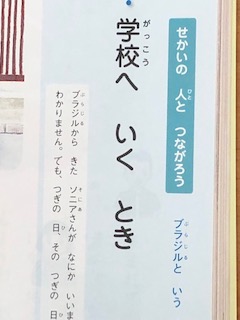 せかいの 人と つながろう
ブラジルと いう
学校へ いく とき
ブラジルから きた ソニアさんが なにか いいま
わかりません。でも、つぎの 日、その つぎの 日